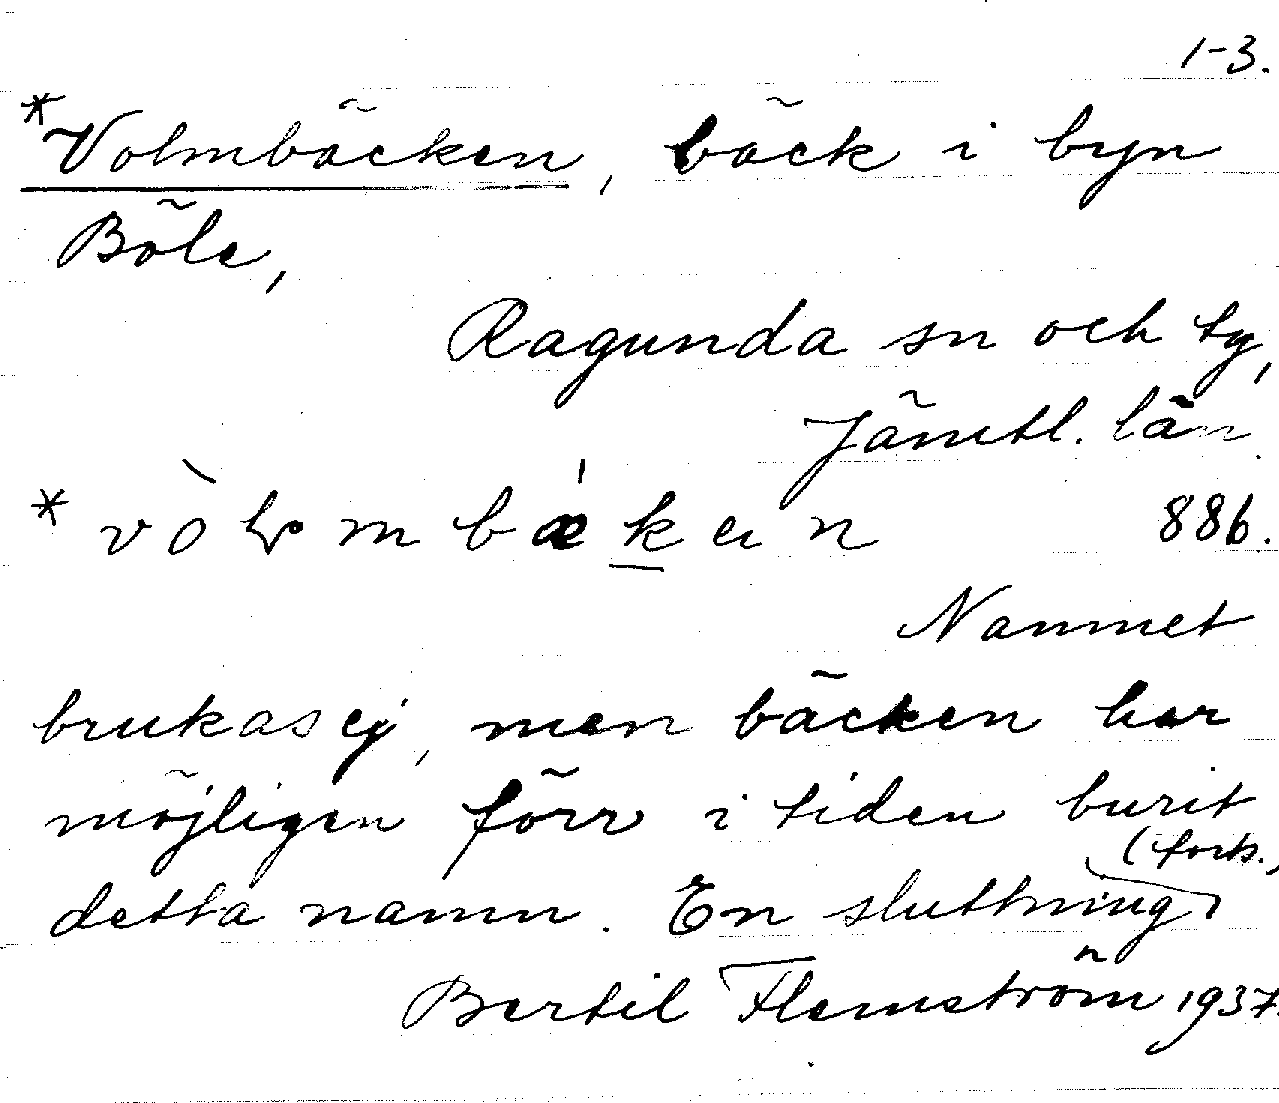 1-3.
*Volmbäcken, bäck i byn
Böle,
Ragunda sn och tg,
Jämtl. län.
* vòlmbækan 886.
Namnet
brukas ej, men bäcken har
möjligen förr i tiden burit
detta namn. En sluttning
(forts.,
Bertil Flemström 1937.